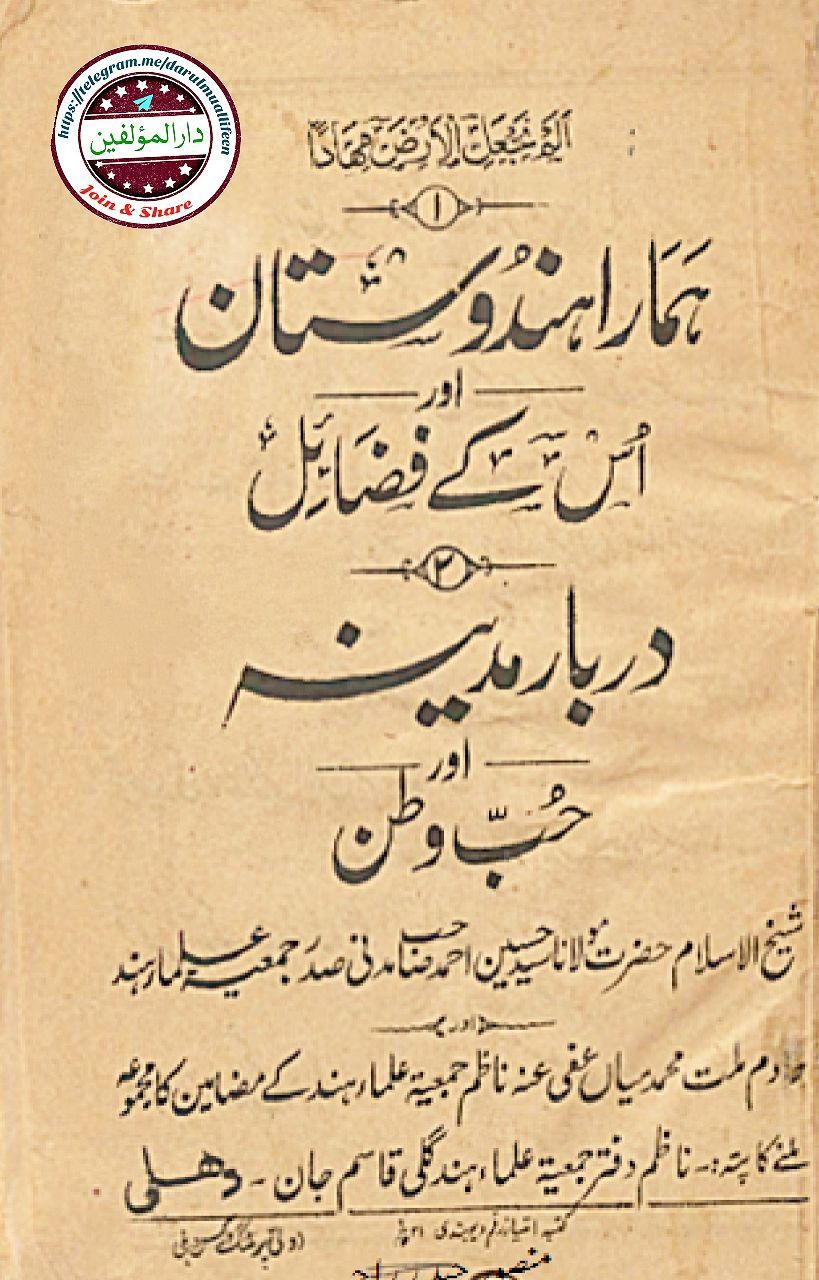 https://telegram.me/darulmuallifeen
دارالمؤلفین
Join & Share
اَلَمْ نَجْعَلِ الْاَرْضَ مِهَادًا
۱
ہَمَارا ہندُوستان
اور
اُس کے فضَائِل
۲
دربار مدینہ
اور
حُبِّ وطن
شیخ الاسلام حضرت مولانا سید حسین احمد صاحب مدنی صدر جمعیۃ علماء ہند
اور
خادم ملت محمد میاں عفی عنہ ناظم جمعیۃ علماء ہند کے مضامین کا مجموعہ
ملنے کا پتہ :۔ ناظم دفتر جمعیۃ علماء ہند گلی قاسم جان ۔ دہلی